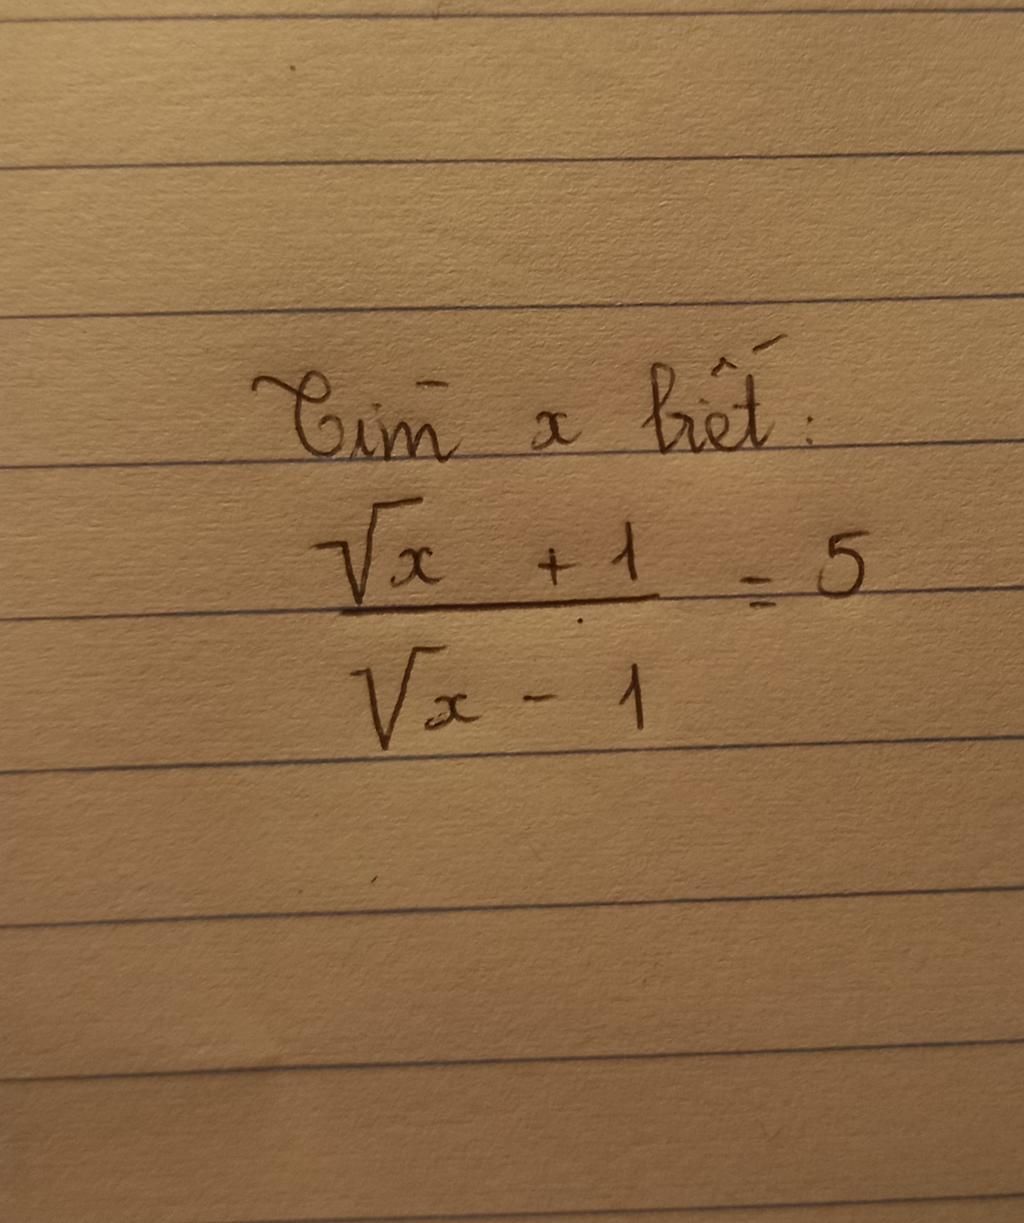 Tìm x biết:
√x + 1
―――― = 5
√x - 1